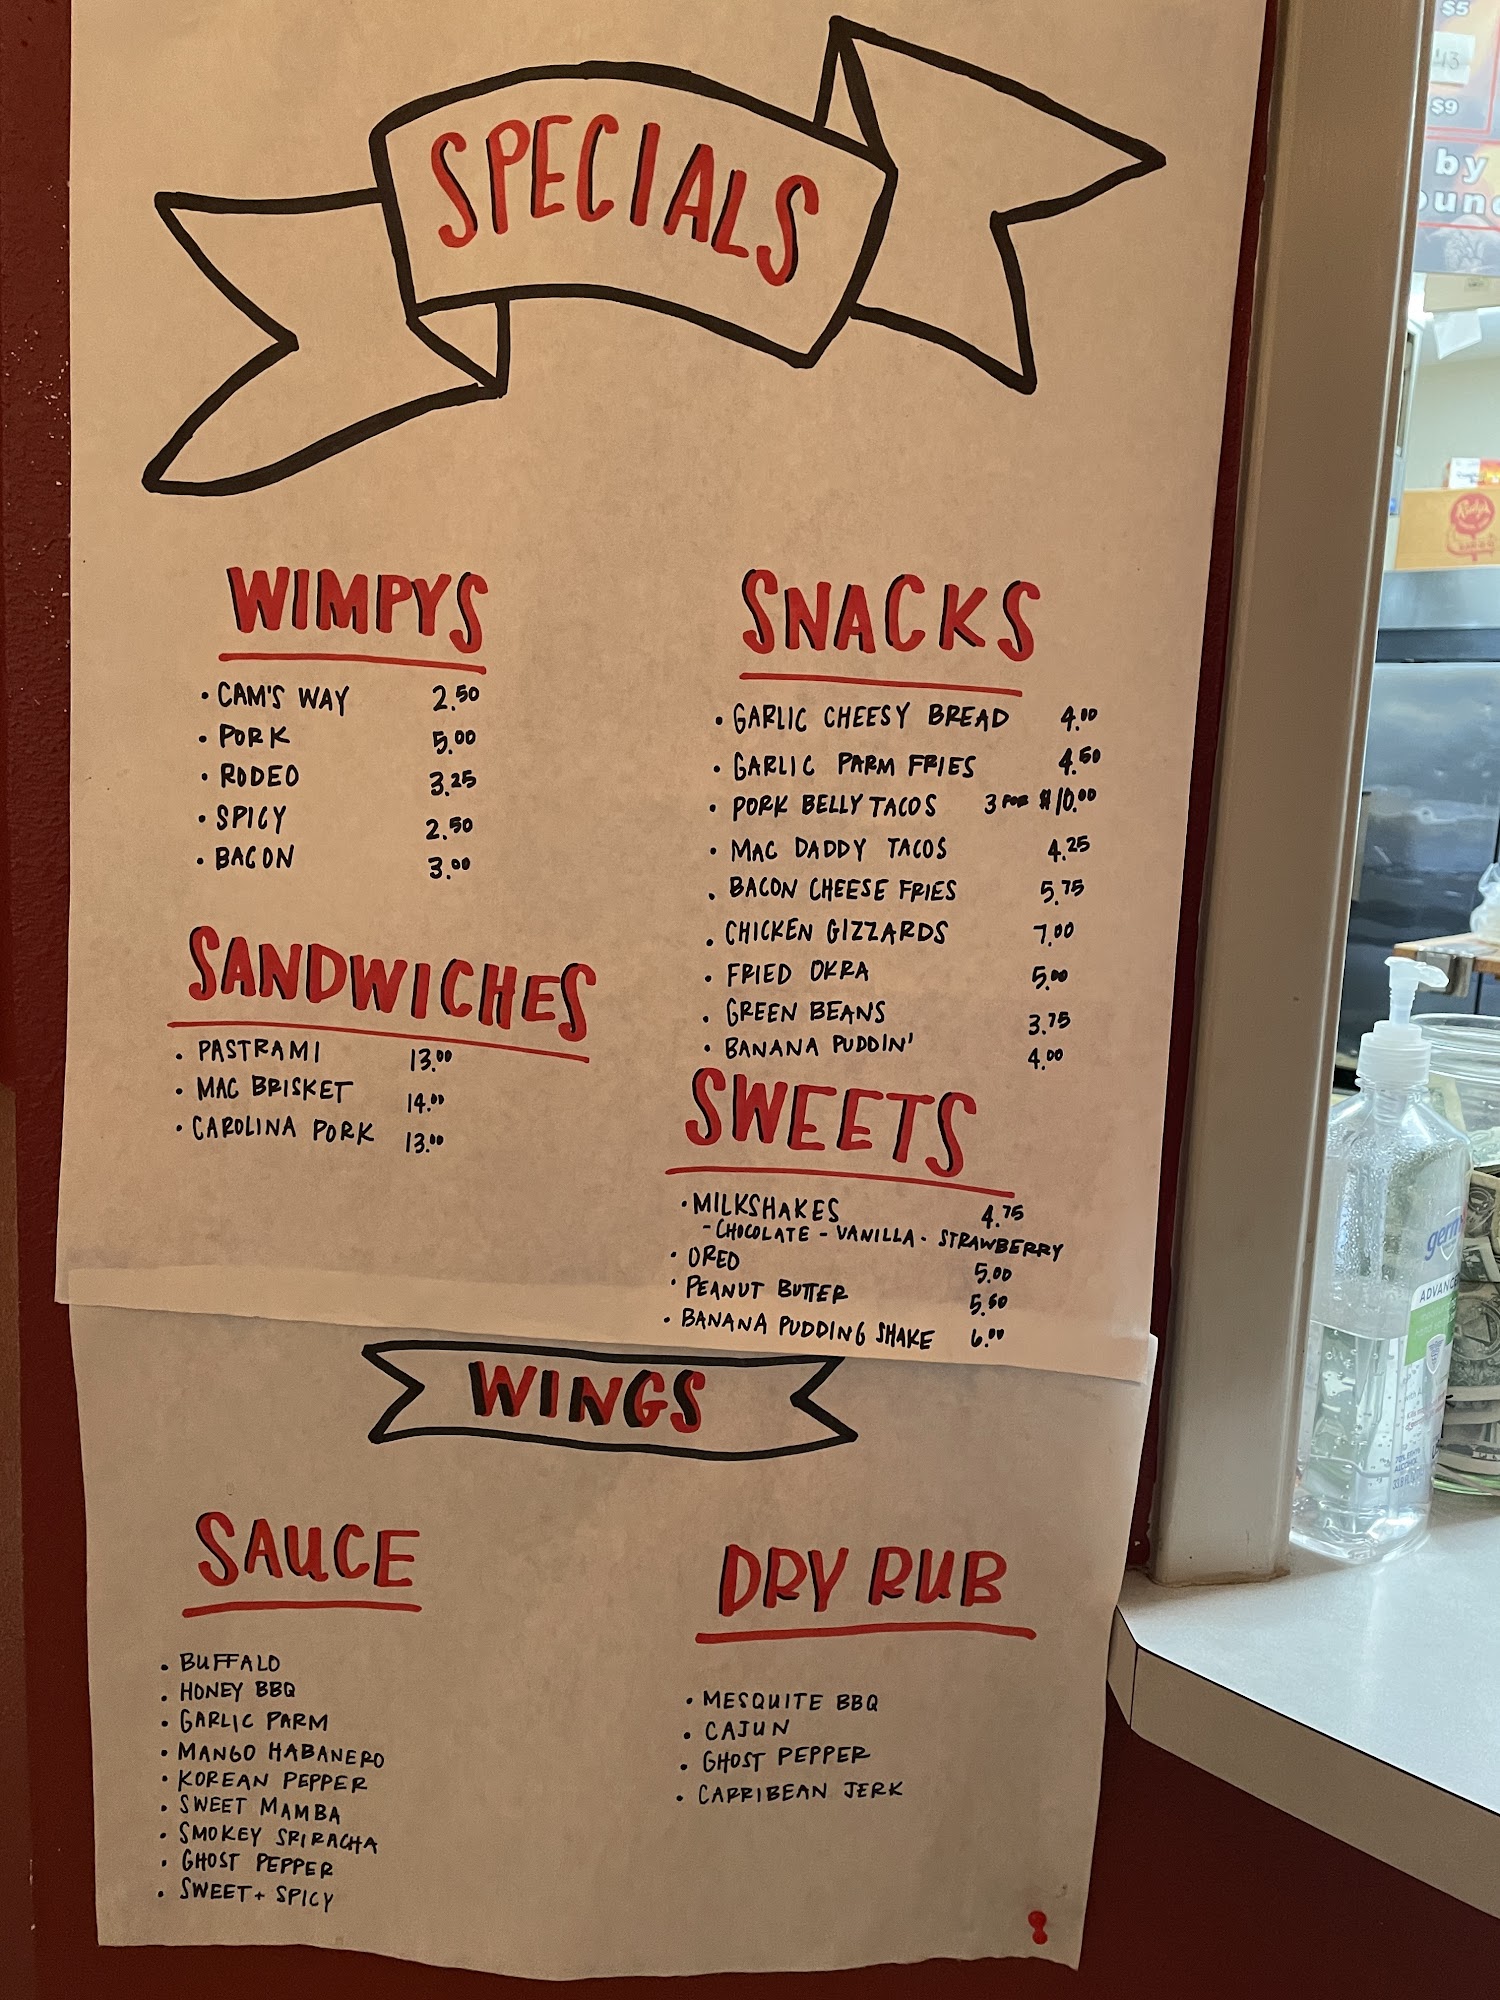 SPECIALS
WIMPYS
• CAM'S WAY 2.50
• PORK 5.00
• RODEO 3.25
• SPICY 2.50
• BACON 3.00
SANDWICHES
• PASTRAMI 13.00
• MAC BRISKET 14.00
• CAROLINA PORK 13.00
SNACKS
• GARLIC CHEESY BREAD 4.00
• GARLIC PARM FRIES 4.50
• PORK BELLY TACOS 3 FOR $10.00
• MAC DADDY TACOS 4.25
• BACON CHEESE FRIES 5.75
• CHICKEN GIZZARDS 7.00
• FRIED OKRA 5.00
• GREEN BEANS 3.75
• BANANA PUDDIN' 4.00
SWEETS
• MILKSHAKES 4.75
- CHOCOLATE - VANILLA - STRAWBERRY
• OREO 5.00
• PEANUT BUTTER 5.50
• BANANA PUDDING SHAKE 6.00
WINGS
SAUCE
• BUFFALO
• HONEY BBQ
• GARLIC PARM
• MANGO HABANERO
• KOREAN PEPPER
• SWEET MAMBA
• SMOKEY SRIRACHA
• GHOST PEPPER
• SWEET + SPICY
DRY RUB
• MESQUITE BBQ
• CAJUN
• GHOST PEPPER
• CARRIBEAN JERK
$5
$9
by
germ
ADVANC